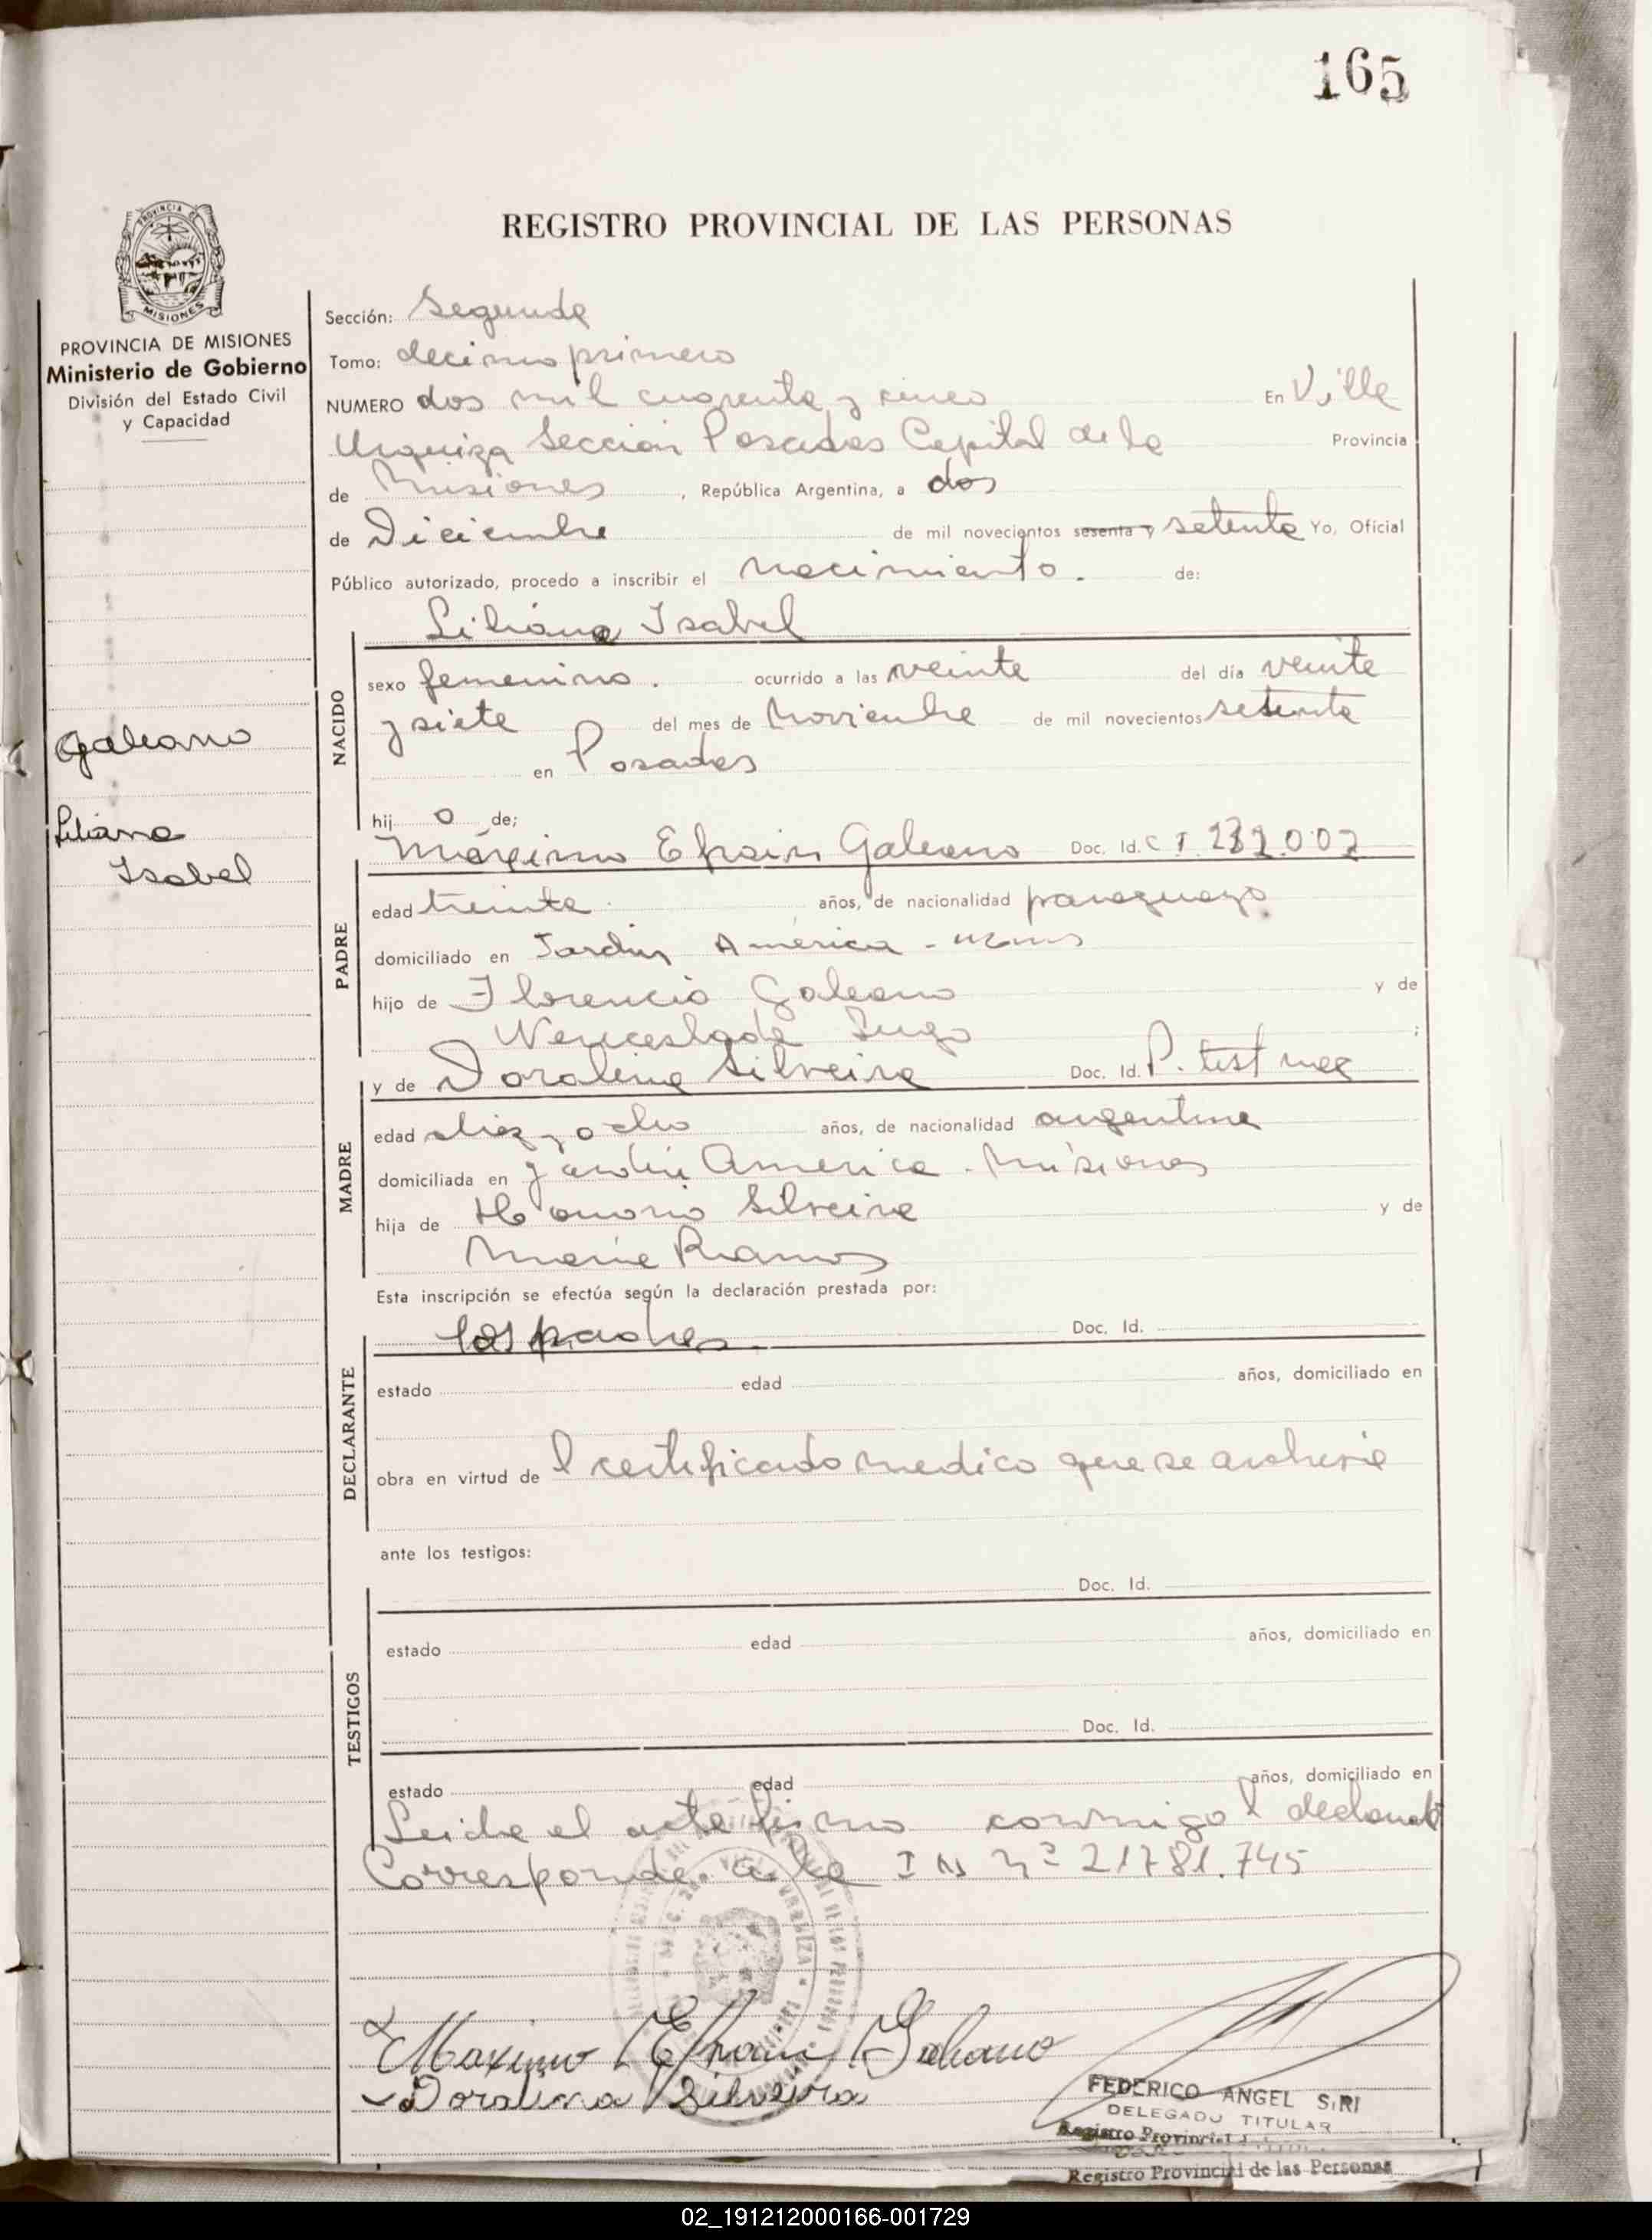 165
REGISTRO PROVINCIAL DE LAS PERSONAS
PROVINCIA DE MISIONES
Ministerio de Gobierno
División del Estado Civil
y Capacidad
Galeano
Liliana
Isabel
Sección: Segunda
Tomo: decimo primero
NUMERO dos mil cuarenta y cinco En Villa
Urquiza Sección Posadas Capital de la Provincia
de Misiones, República Argentina, a dos
de Diciembre de mil novecientos sesenta y setenta Yo, Oficial
Público autorizado, procedo a inscribir el nacimiento. de:
Liliana Isabel
NACIDO
sexo femenino. ocurrido a las veinte del día veinte
y siete del mes de Noviembre de mil novecientos setenta
en Posadas
hij o de;
Máximo Efrain Galeano Doc. Id. C I
PADRE
edad treinta años, de nacionalidad paraguayo
domiciliado en Jardin America -
hijo de Florencio Galeano y de
Wenceslada ;
y de Doralina Silveira Doc. Id. P. test
MADRE
edad diez y ocho años, de nacionalidad argentina
domiciliada en Jardin America - Misiones
hija de Honorio Silveira y de
Maria Ramos
Esta inscripción se efectúa según la declaración prestada por:
los padres Doc. Id.
DECLARANTE
estado edad años, domiciliado en
obra en virtud de l certificado medico que se archiva
ante los testigos:
Doc. Id.
TESTIGOS
estado edad años, domiciliado en
Doc. Id.
estado edad años, domiciliado en
Leida el acta firma conmigo l declarante
Corresponde a la I N Nº 21781.745
Maximo Efrain Galeano
Doralina Silveira
FEDERICO ANGEL SIRI
DELEGADO TITULAR
Registro Provincial
Registro Provincial de las Personas
02_191212000166-001729